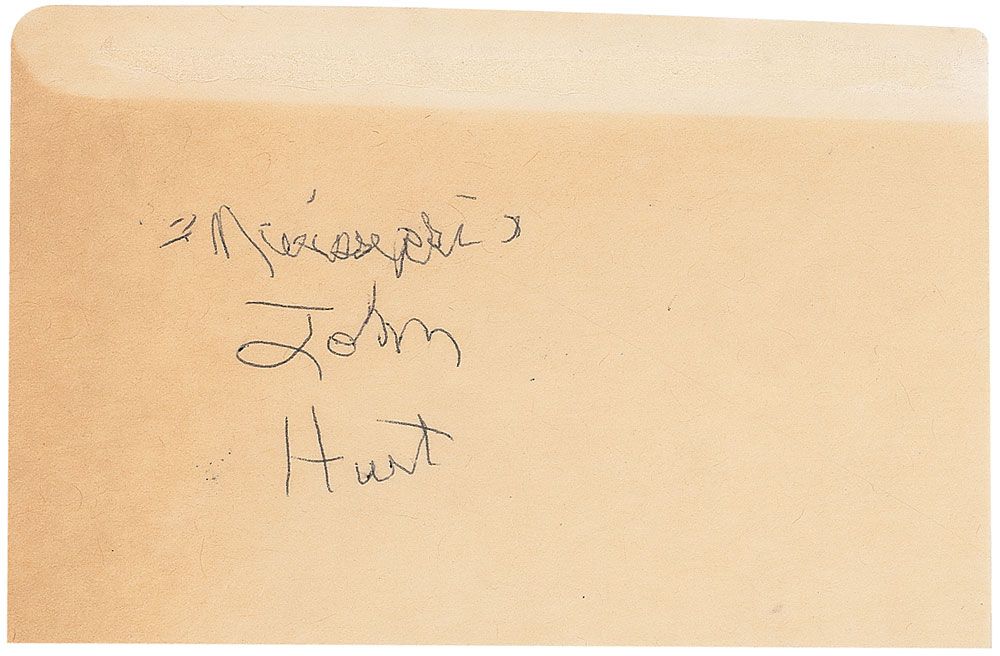 "Mississippi"
John
Hurt